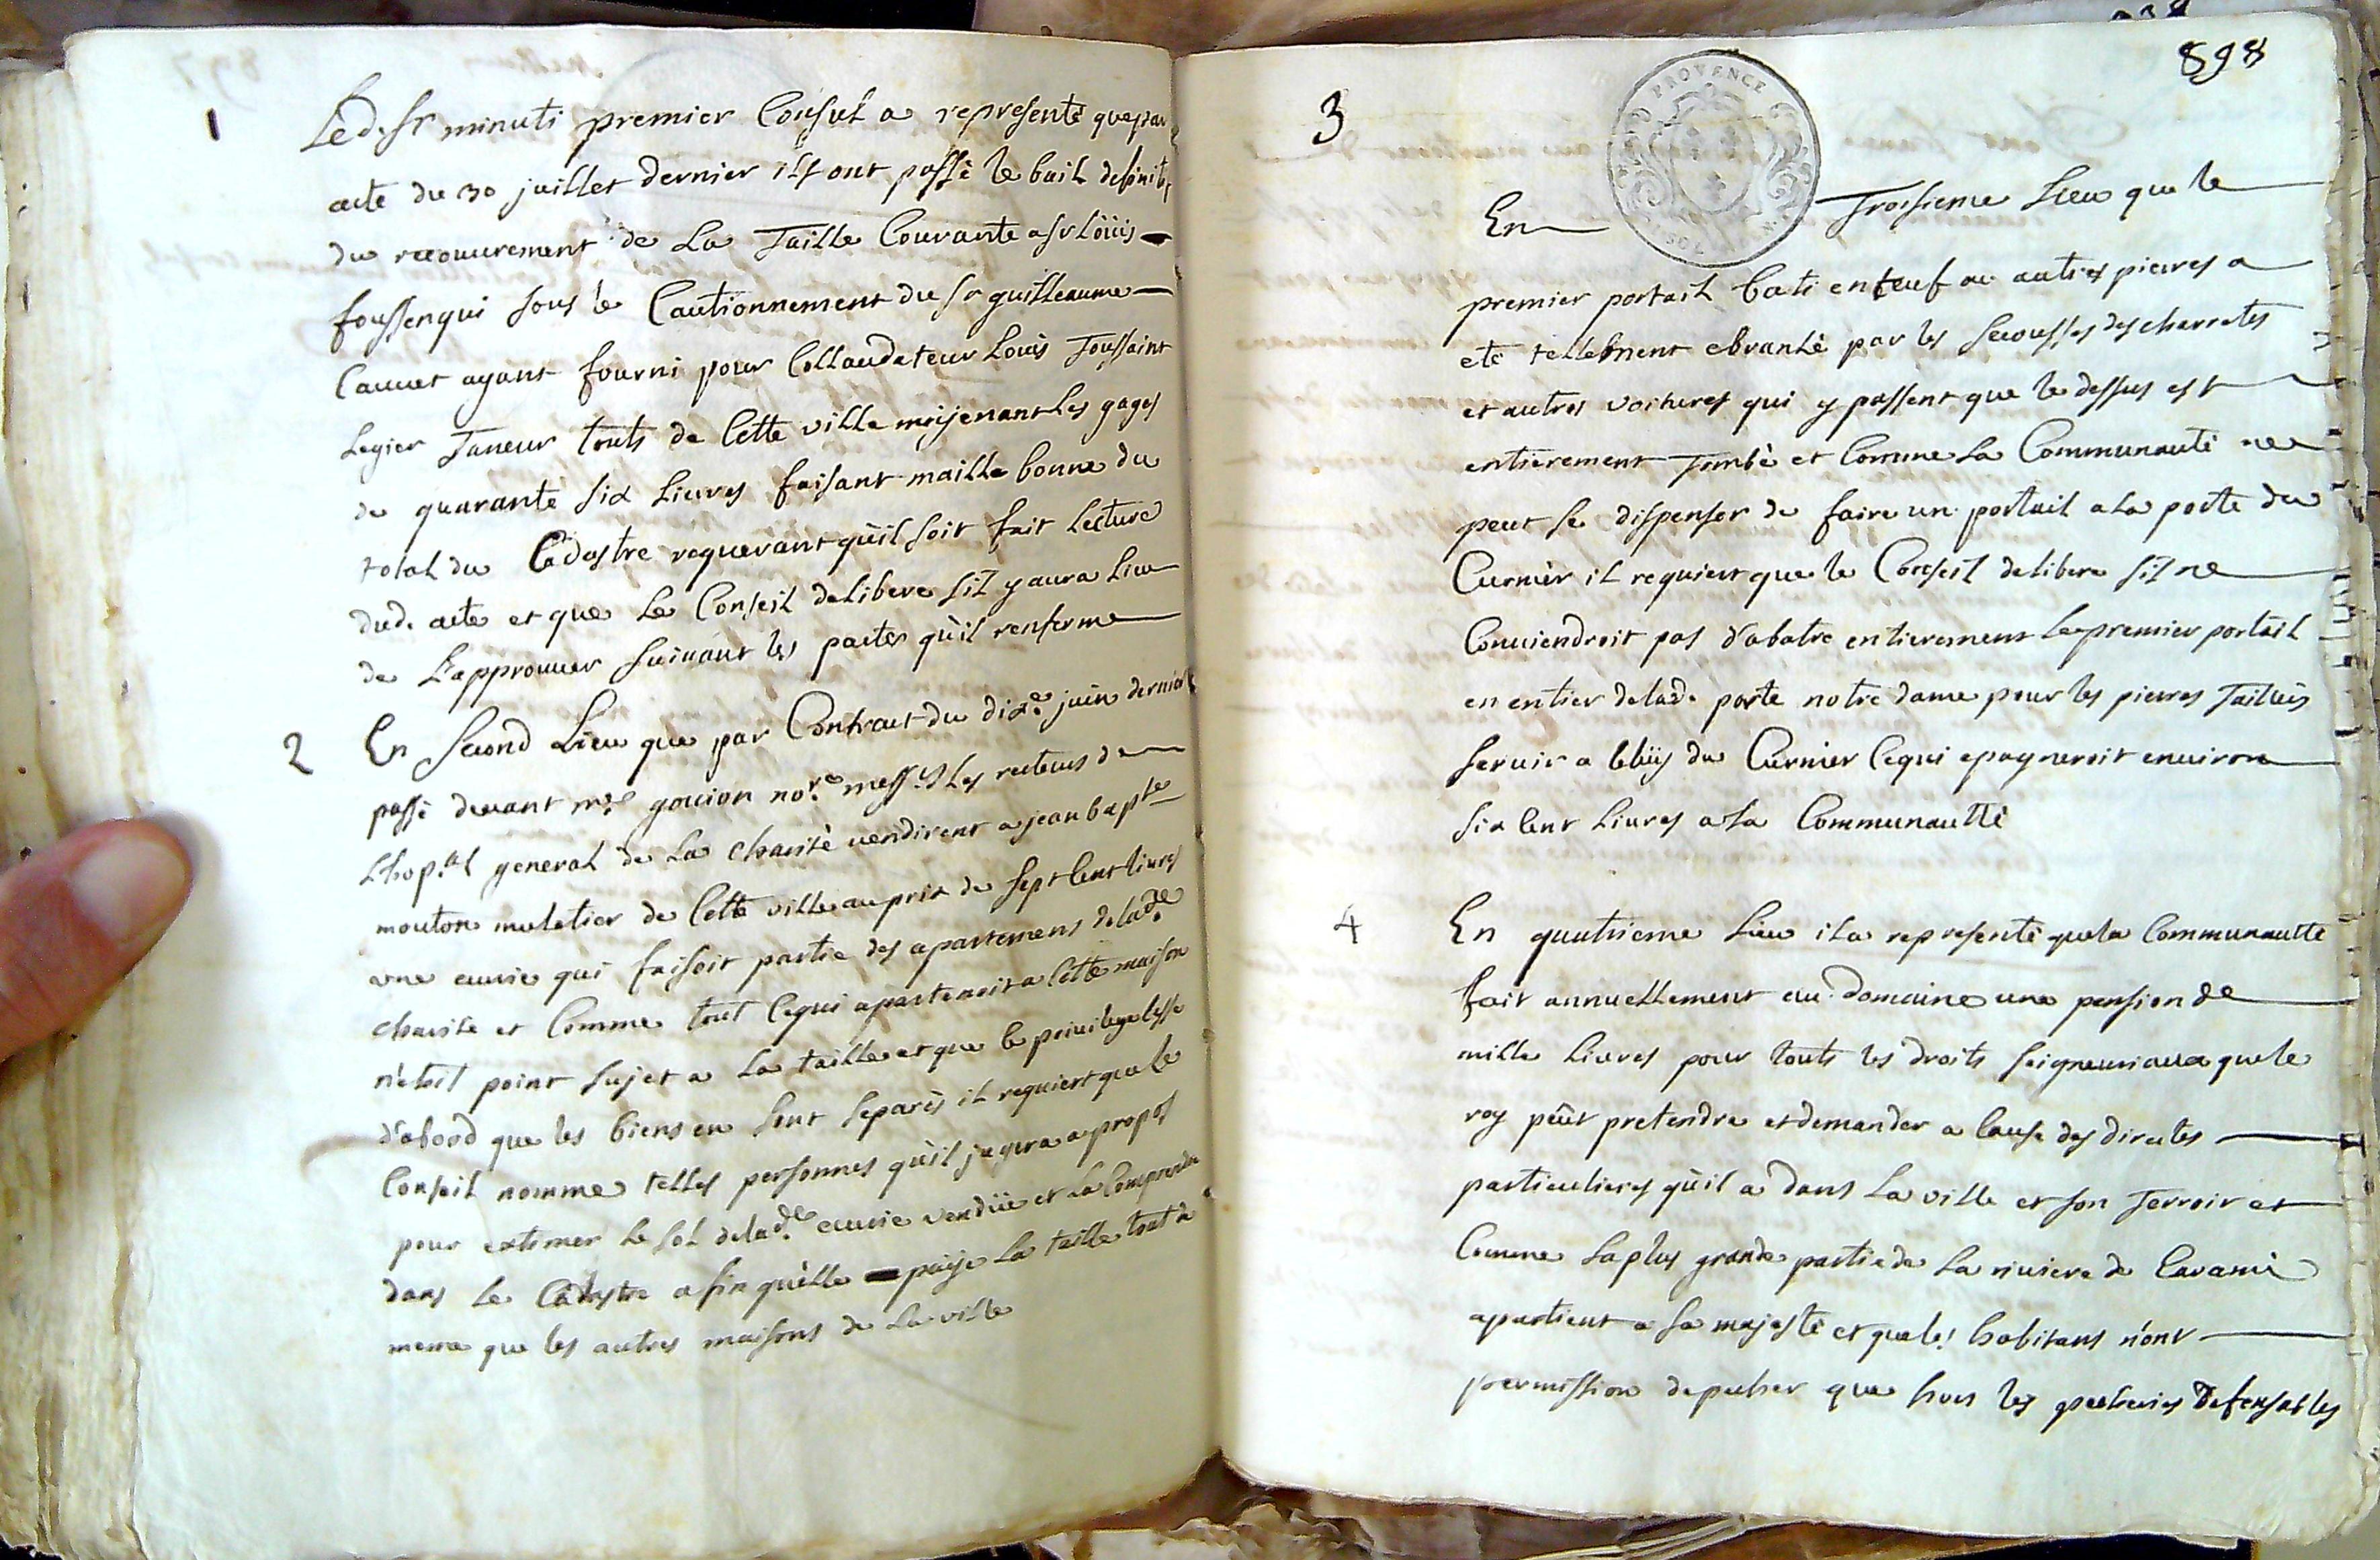 1
Led. sr minuti premier Consul a representé que par
acte du 30 juillet dernier ils ont passé le bail definitif
du recouvrement de La Taille Courante a sr Loüis
foussenqui sous le Cautionnement du sr guilleaume
Cauvet ayant fourni pour Collaudateur Louis Toussaint
Legier Taneur touts de Cette ville moyenant les gages
de quarante six Livres faisant maille bonne du
total du Cadastre requerant qu'il soit fait lecture
dud. acte et que Le Conseil delibere sil y aura lieu
de L'approuver suivant les pactes qu'il renferme
2
En Second Lieu que par Contract du dixe. juin dernier
passé devant me gouion nore. messrs Les recteurs de
Lhop.al general de La charité vendirent a jean bapte
mouton muletier de Cette ville au prix de sept Cent livres
une ecurie qui faisoit partie des apartemens de lade.
charite et Comme tout Cequi apartenoit a Cette maison
n'etoit point sujet a La taille et que le privilege Cesse
d'abord que les biens en sont separés il requiert que le
Conseil nomme telles personnes qu'il jugera a propos
pour extimer Le sol de lade. ecurie vendüe et La Comprendre
dans Le Cadastre afin qu'elle paije La taille tout de
meme que les autres maisons de La ville
898
PROVENCE
3
En Troisieme Lieu que le
premier portail bati en teuf ou autres pierres a
eté tellement ebranlé par les secousses des charretes
et autres voitures qui y passent que le dessus est
entierement Tombé et Comme La Communauté ne
peut se dispenser de faire un portail a la porte du
Curnier il requiert que le Conseil delibere sil ne
Conviendroit pas d'abatre entierement Le premier portail
en entier de lad. porte notre dame pour les pierres Tailléés
servir a Celluy du Curnier Cequi epagneroit environ
six Cent Livres a La Communautté
4
En quatrieme Lieu il a representé que la Communautté
fait annuellement au domaine une pension de
mille Livres pour touts les droits seigneuriaux que le
roy peut pretendre et demander a Cause des directes
particulieres qu'il a dans La ville et son Terroir et
Comme La plus grande partie de La riviere de Carami
apartient a sa majesté et que les habitans n'ont
permission de pecher que hors les pecheries defensables